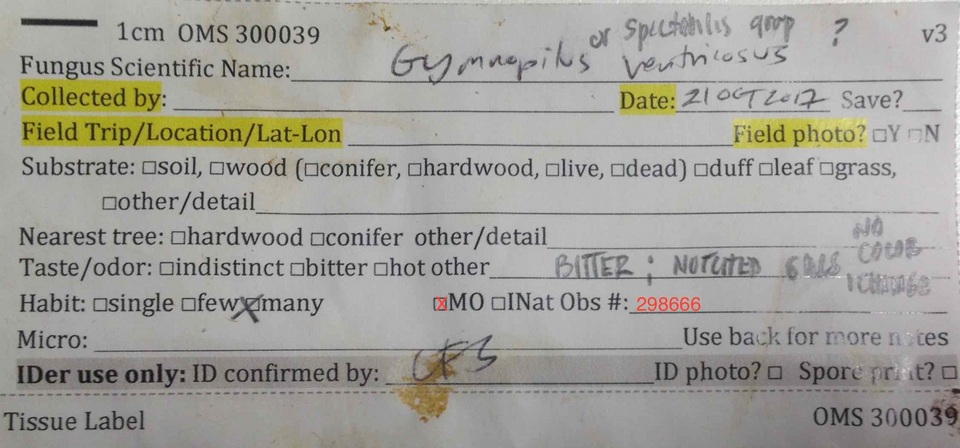 1cm OMS 300039 or Spectabilis group ? v3
Fungus Scientific Name: Gymnopilus ventricosus
Collected by: Date: 21 OCT 2017 Save?
Field Trip/Location/Lat-Lon Field photo? □Y □N
Substrate: □soil, □wood (□conifer, □hardwood, □live, □dead) □duff □leaf □grass,
□other/detail
Nearest tree: □hardwood □conifer other/detail NO
Taste/odor: □indistinct □bitter □hot other BITTER; NOTCHED GILLS COLOR
Habit: □single □few X many xMO □INat Obs #: 298666 CHANGE
Micro: Use back for more notes
IDer use only: ID confirmed by: ID photo? □ Spore print? □
Tissue Label OMS 300039